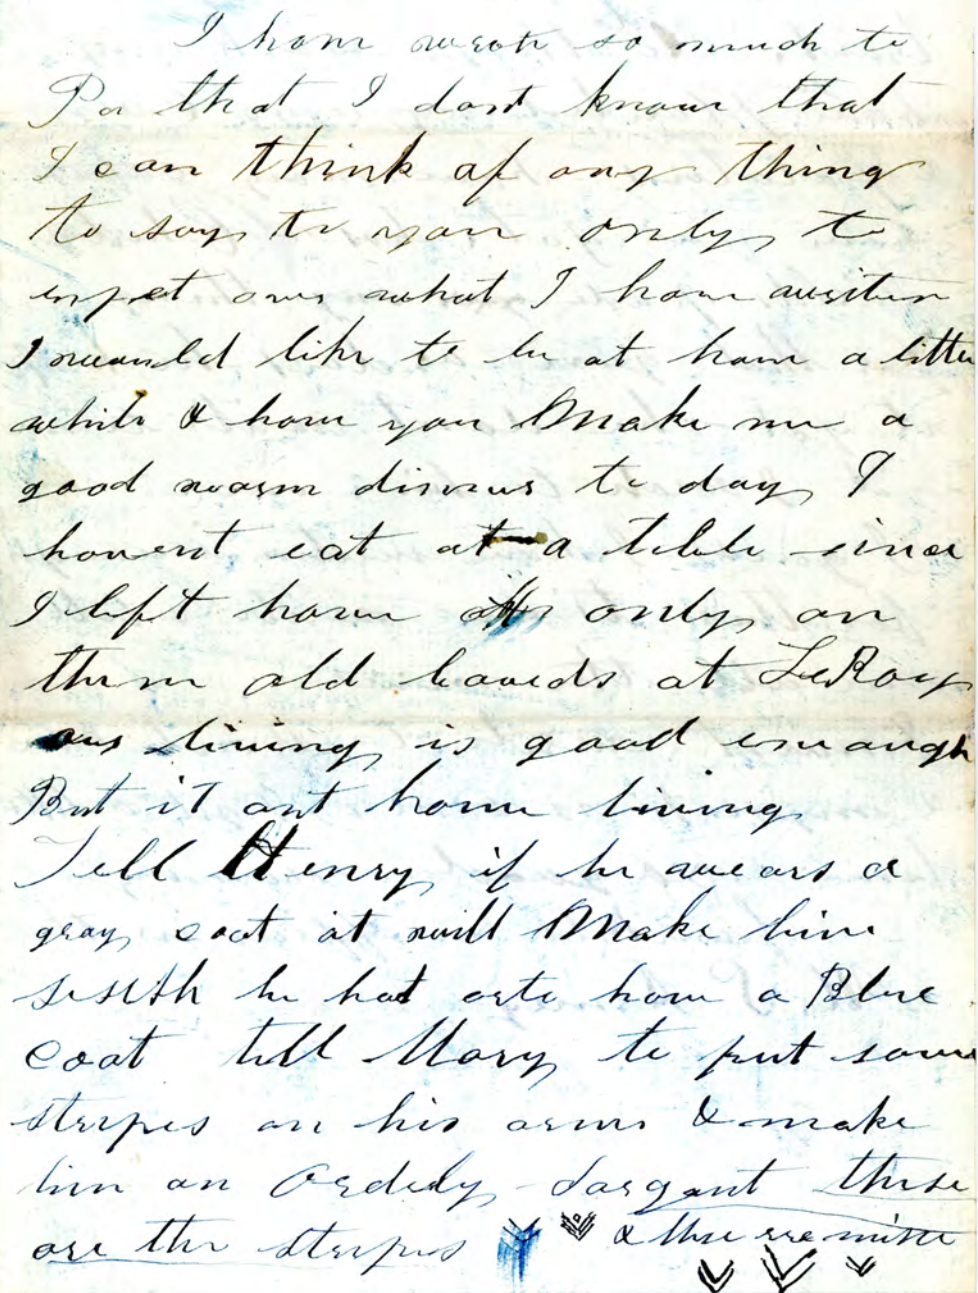 I have wrote so much to
Pa that I dont know that
I can think of any thing
to say to you only to
what I have writen
I would like to be at home a little
while & have you Make me a
good warm dinner to day I
havent eat at a table since
I left home only on
them old boards at LeRoy
our living is good enough
But it ant home living
Tell Henry if he wears a
gray coat it will Make him
he had orto have a Blue
coat tell Mary to put some
stripes on his arms & make
him an Orderly Sargant these
are the stripes & these are mine